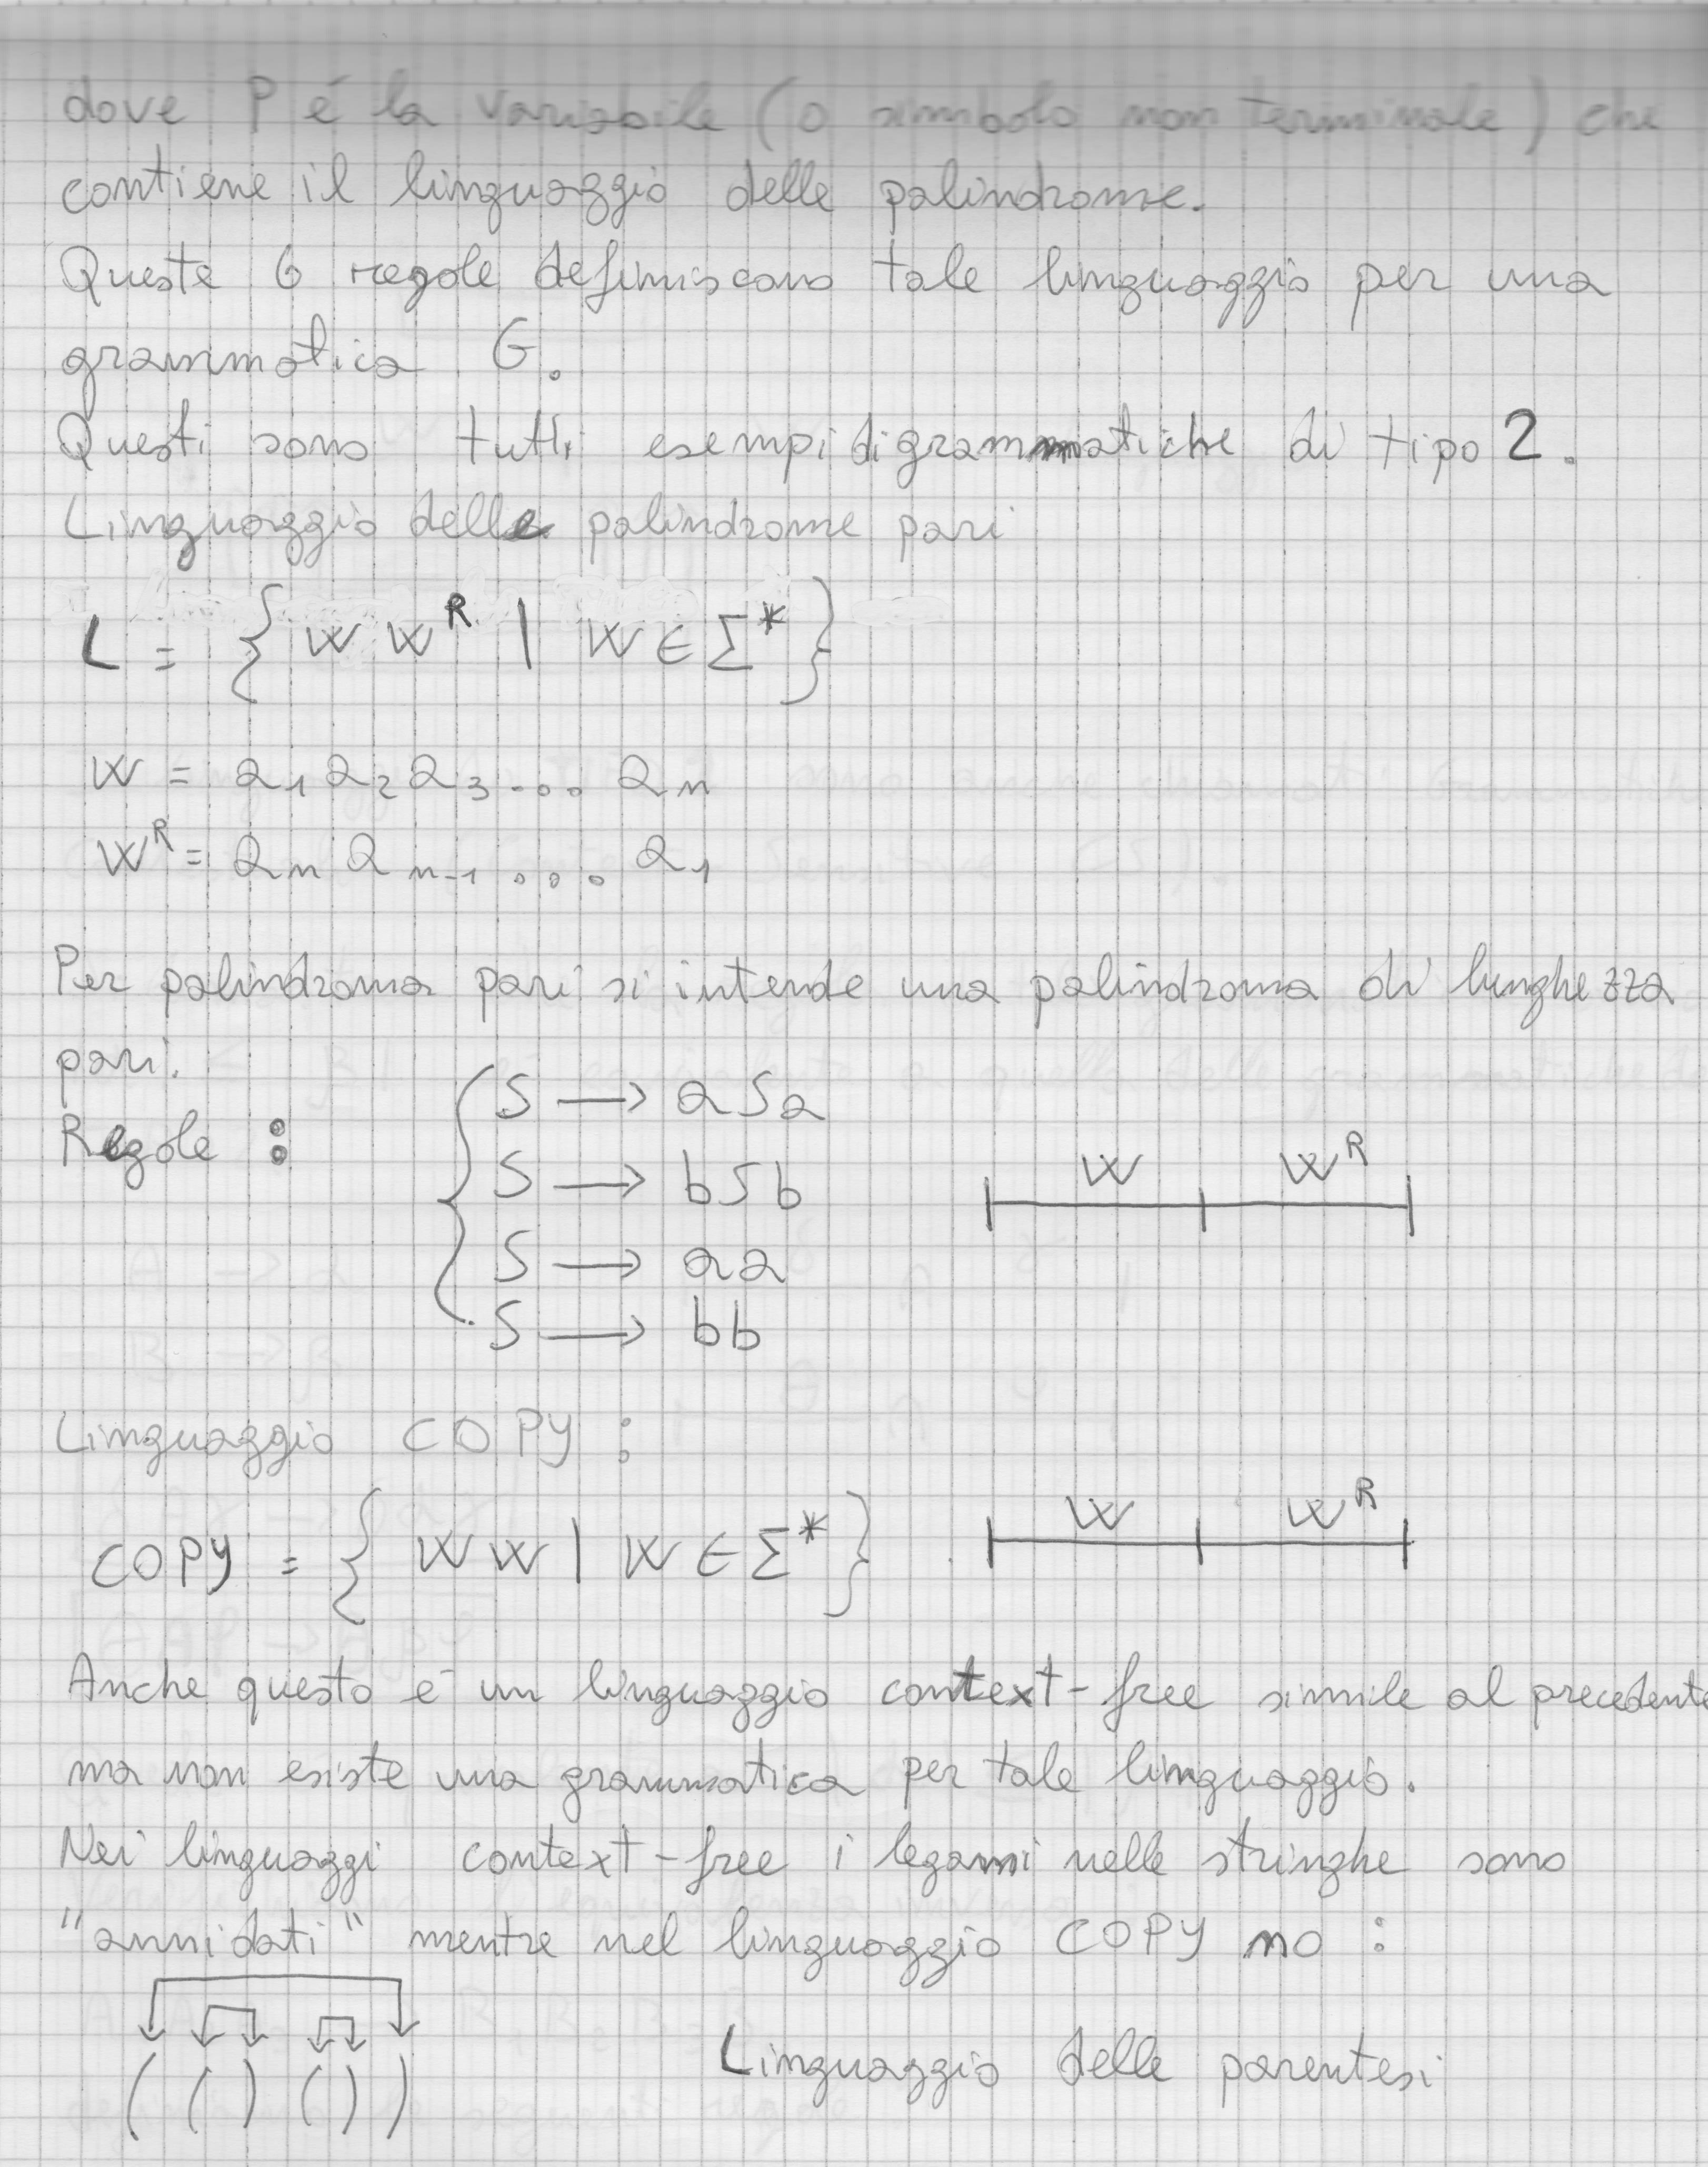 dove P é la variabile (o simbolo non terminale) che
contiene il linguaggio delle palindrome.
Queste 6 regole definiscono tale linguaggio per una
grammatica G.
Questi sono tutti esempi di grammatiche di tipo 2.
Linguaggio delle palindrome pari
L = { W W^R | W ∈ Σ* }
W = a₁ a₂ a₃ ... aₙ
W^R = aₙ aₙ₋₁ ... a₁
Per palindroma pari si intende una palindroma di lunghezza
pari.
Regole :
S → aSa
S → bSb
S → aa
S → bb
W W^R
Linguaggio COPY :
COPY = { W W | W ∈ Σ* }
W W^R
Anche questo é un linguaggio context-free simile al precedente
ma non esiste una grammatica per tale linguaggio.
Nei linguaggi context-free i legami nelle stringhe sono
"annidati" mentre nel linguaggio COPY no :
( ( ) ( ) )
Linguaggio delle parentesi